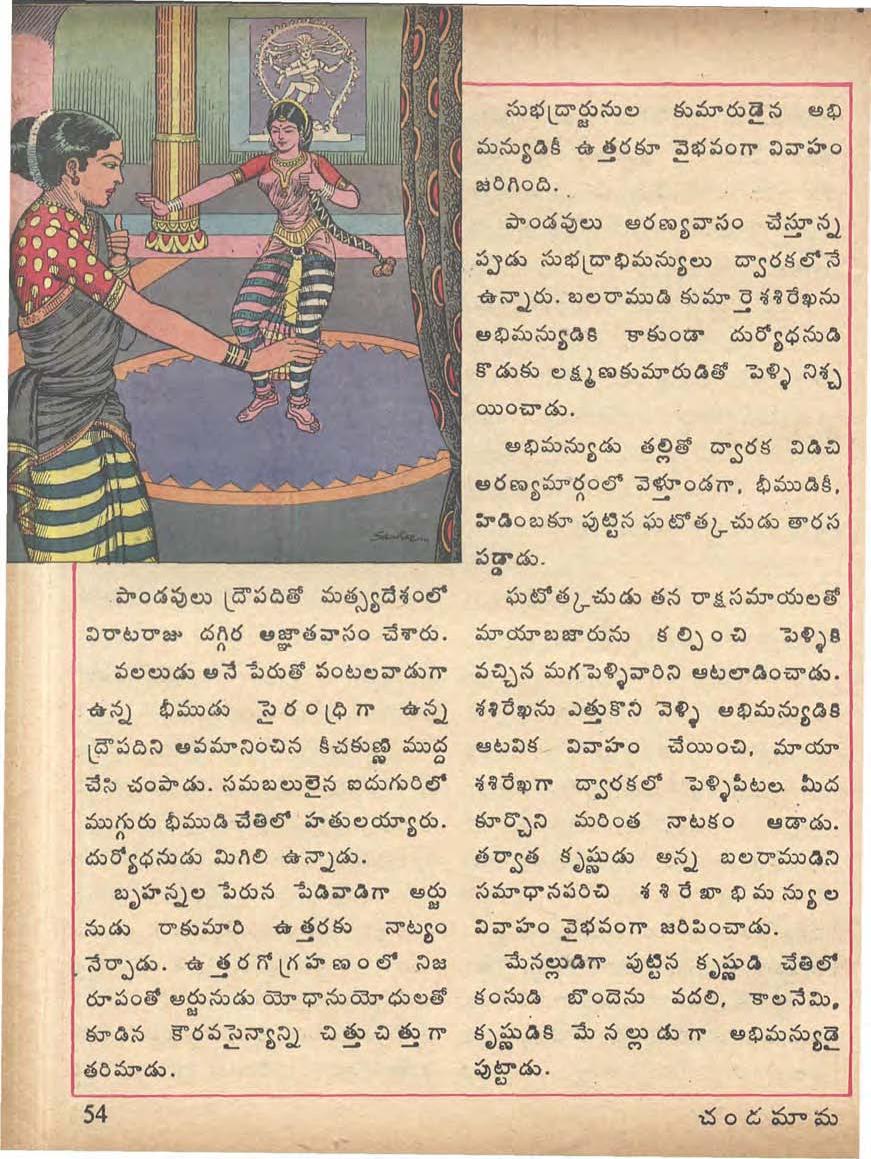 పాండవులు ద్రౌపదితో మత్స్యదేశంలో
విరాటరాజు దగ్గిర అజ్ఞాతవాసం చేశారు.
వలలుడు అనే పేరుతో వంటలవాడుగా
ఉన్న భీముడు సైరంధ్రిగా ఉన్న
ద్రౌపదిని అవమానించిన కీచకుణ్ణి ముద్ద
చేసి చంపాడు. సమబలులైన ఐదుగురిలో
ముగ్గురు భీముడి చేతిలో హతులయ్యారు.
దుర్యోధనుడు మిగిలి ఉన్నాడు.
బృహన్నల పేరున పేడివాడిగా అర్జు
నుడు రాకుమారి ఉత్తరకు నాట్యం
నేర్పాడు. ఉత్తరగోగ్రహణంలో నిజ
రూపంతో అర్జునుడు యోధానుయోధులతో
కూడిన కౌరవసైన్యాన్ని చిత్తుచిత్తుగా
తరిమాడు.
సుభద్రార్జునుల కుమారుడైన అభి
మన్యుడికీ ఉత్తరకూ వైభవంగా వివాహం
జరిగింది.
పాండవులు అరణ్యవాసం చేస్తూన్న
ప్పుడు సుభద్రాభిమన్యులు ద్వారకలోనే
ఉన్నారు. బలరాముడి కుమార్తె శశిరేఖను
అభిమన్యుడికి కాకుండా దుర్యోధనుడి
కొడుకు లక్ష్మణకుమారుడితో పెళ్ళి నిశ్చ
యించాడు.
అభిమన్యుడు తల్లితో ద్వారక విడిచి
అరణ్యమార్గంలో వెళ్తూండగా, భీముడికీ,
హిడింబకూ పుట్టిన ఘటోత్కచుడు తారస
పడ్డాడు.
ఘటోత్కచుడు తన రాక్షసమాయలతో
మాయాబజారును కల్పించి పెళ్ళికి
వచ్చిన మగపెళ్ళివారిని ఆటలాడించాడు.
శశిరేఖను ఎత్తుకొని వెళ్ళి అభిమన్యుడికి
ఆటవిక వివాహం చేయించి, మాయా
శశిరేఖగా ద్వారకలో పెళ్ళిపీటల మీద
కూర్చొని మరింత నాటకం ఆడాడు.
తర్వాత కృష్ణుడు అన్న బలరాముడిని
సమాధానపరిచి శశిరేఖాభిమన్యుల
వివాహం వైభవంగా జరిపించాడు.
మేనల్లుడిగా పుట్టిన కృష్ణుడి చేతిలో
కంసుడి బొందెను వదలి, కాలనేమి,
కృష్ణుడికి మేనల్లుడుగా అభిమన్యుడై
పుట్టాడు.
54
చందమామ